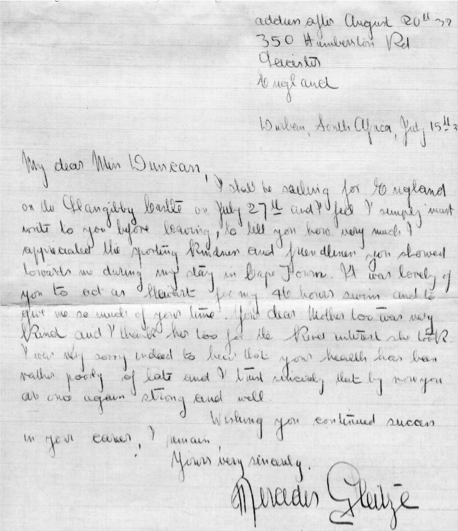 address after August 20th 32
350 Humberstone Rd
Leicester
England
Durban, South Africa, July 15th 3
My dear Miss Duncan,
I shall be sailing for England
on the Llangibby Castle on July 27th and I feel I simply must
write to you before leaving, to tell you how very much I
appreciated the sporting kindness and friendliness you showed
towards me during my stay in Cape Town. It was lovely of
you to act as for my 46 hours swim and to
give me so much of your time. Your dear Mother too was very
kind and I thank her too for the kind interest she took
I was very sorry indeed to hear that your health has been
rather poorly of late and I trust sincerely that by now you
are once again strong and well
Wishing you continued success
in your career, I remain
Yours very sincerely.
Mercedes Gleitze